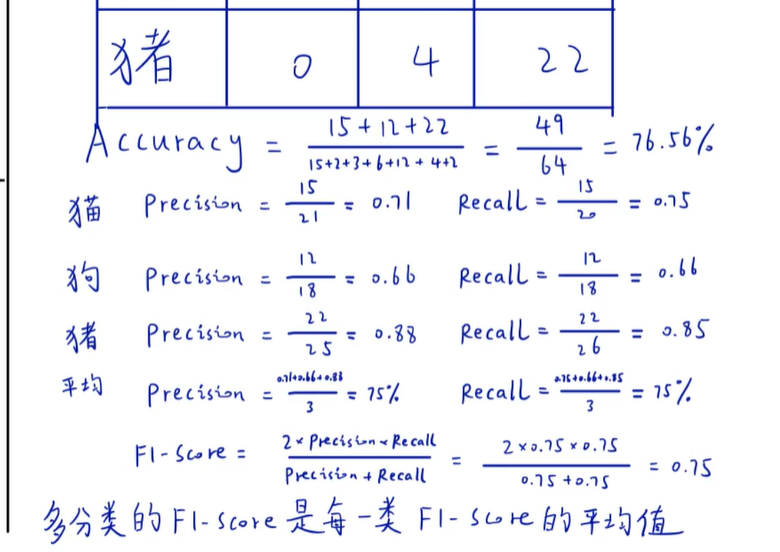 猪 0 4 22
Accuracy = 15+12+22 / 15+2+3+6+12+4+2 = 49 / 64 = 76.56%
猫 Precision = 15 / 21 = 0.71 Recall = 15 / 20 = 0.75
狗 Precision = 12 / 18 = 0.66 Recall = 12 / 18 = 0.66
猪 Precision = 22 / 25 = 0.88 Recall = 22 / 26 = 0.85
平均 Precision = 0.71+0.66+0.88 / 3 = 75% Recall = 0.75+0.66+0.85 / 3 = 75%
F1-Score = 2 × Precision × Recall / Precision + Recall = 2 × 0.75 × 0.75 / 0.75 + 0.75 = 0.75
多分类的 F1-Score 是每一类 F1-Score 的平均值